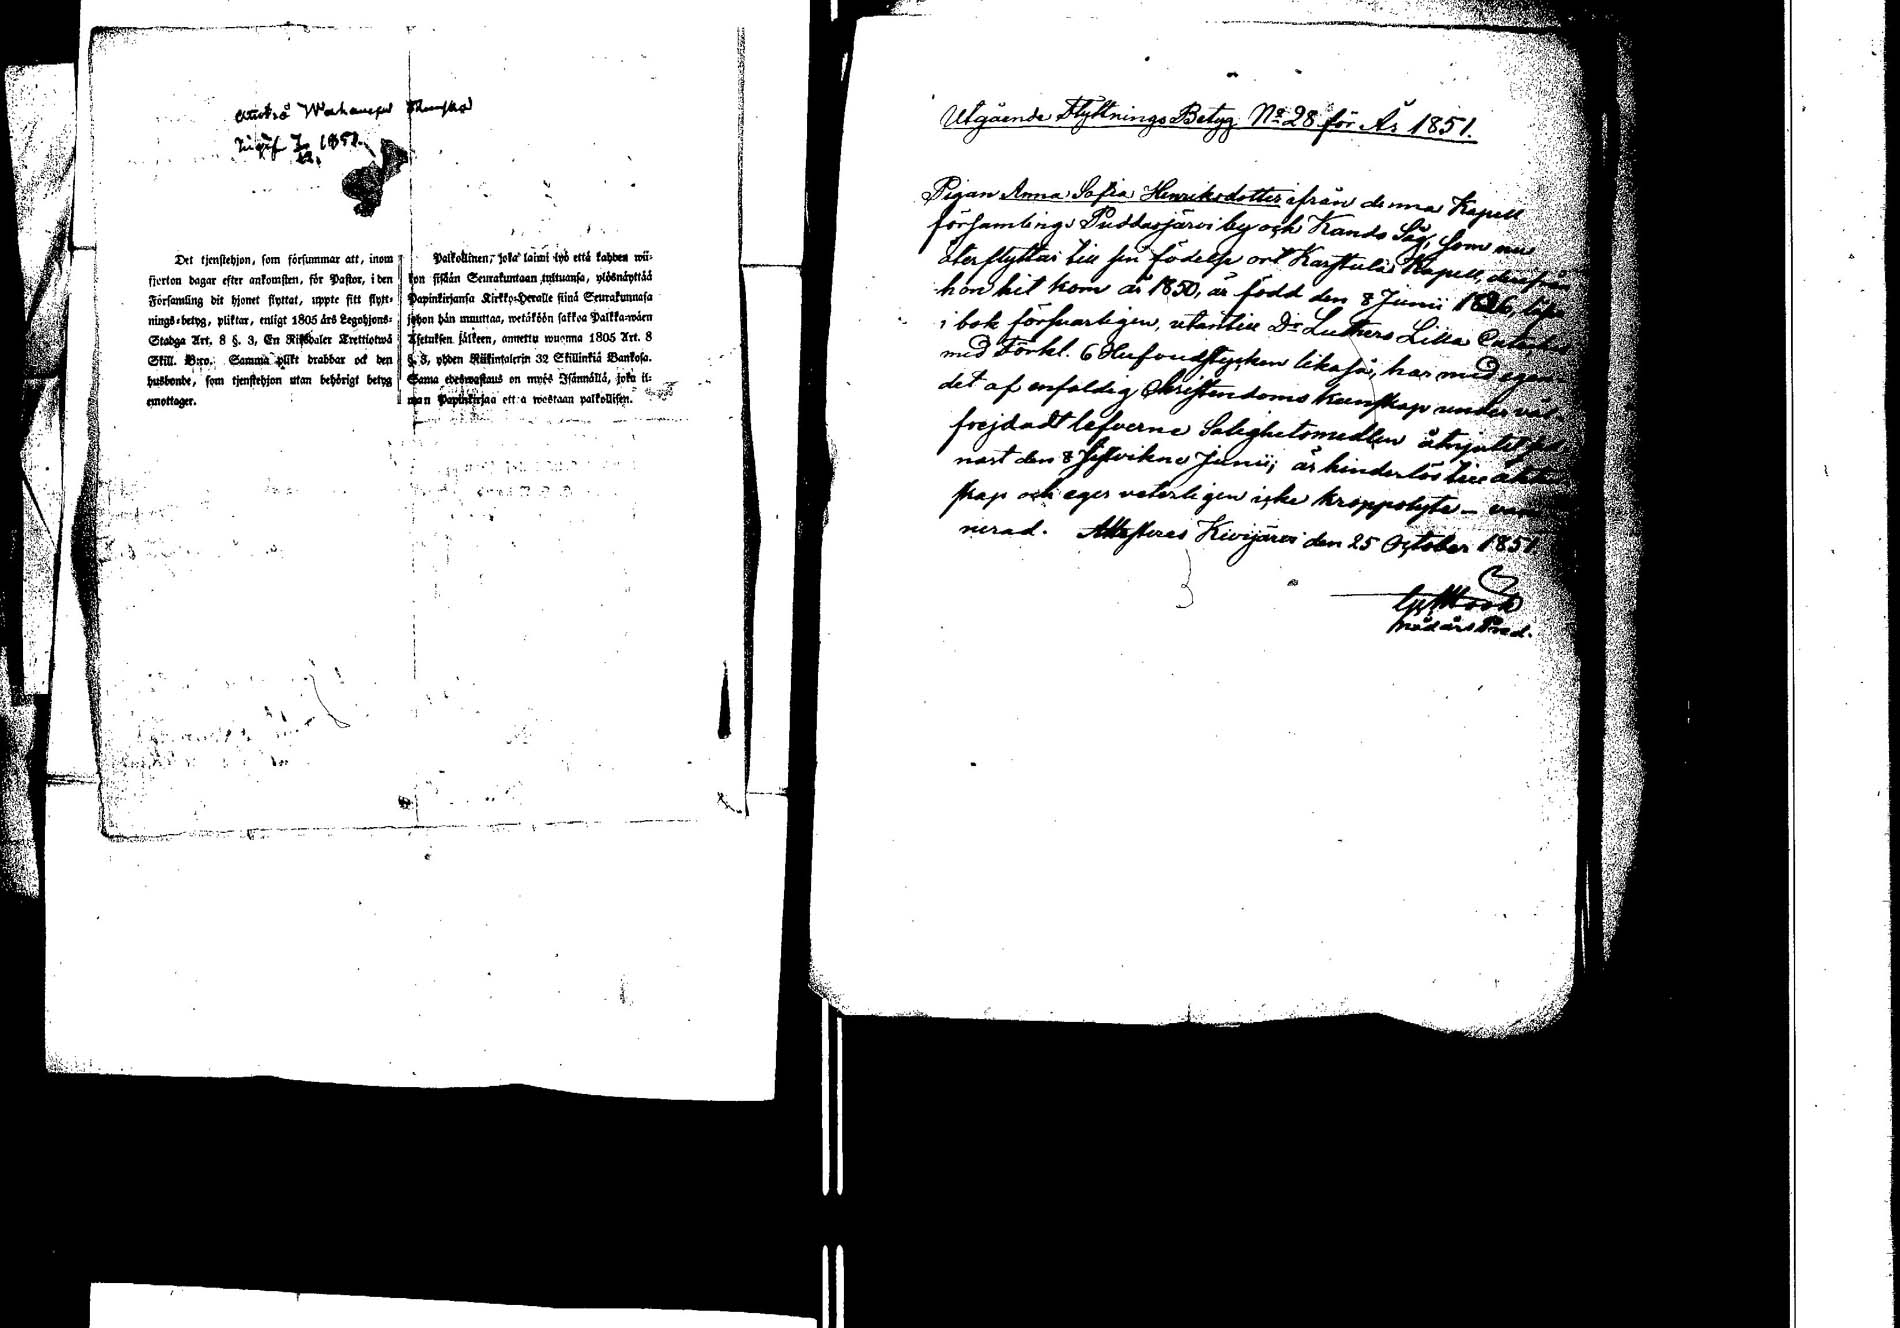 1851.
Det tjenstehjon, som försummar att, inom
fjorton dagar efter ankomsten, för Pastor, i den
Församling dit hjonet flyttat, uppte sitt flytt-
nings-betyg, pliktar, enligt 1805 års Legohjons-
Stadga Art. 8 §. 3, En Riksdaler Trettiotwå
Skill. B:co. Samma plikt drabbar ock den
husbonde, som tjenstehjon utan behörigt betyg
emottager.
Palkollinen, joka laimi lyö että kahden wii-
kon sisään Seurakuntaan tultuansa, ylösnäyttää
Papinkirjansa Kirkko-Herralle siinä Seurakunnasa
johon hän muuttaa, wetäköön sakkoa Palkka-wäen
Asetuksen jälkeen, annettu wuonna 1805 Art. 8
§. 3, yhden Riikintalerin 32 Skillinkiä Bankosa.
Sama edeswastaus on myös Isännällä, joka il-
man Papinkirjaa ottaa wastaan palkollisen.
Utgående Flyttnings Betyg No 28 för År 1851.
Pigan Anna Sofia Henriksdotter ifrån denna Kapell
församlings Puddasjärvi by och Kands Såg, som nu
återflyttar till sin födelse ort Karstula Kapell, derifrån
hon hit kom år 1850, är född den 8 Junii 1826, läser
i bok försvarligen, utantill Dr Luthers Lilla Cateches
med Förkl. 6 Hufvudstycken likaså, har med egen-
det af enfaldig Christendoms kunskap under väl-
frejdadt lefverne Salighetsmedlen åtnjutit sed-
nast den 8 sistvikne Junii; är hinderlös till äkten-
skap och eger veterligen icke kroppslyte – vacci-
nerad. Attesteras Kivijärvi den 25 October 1851
nådårs Pred.